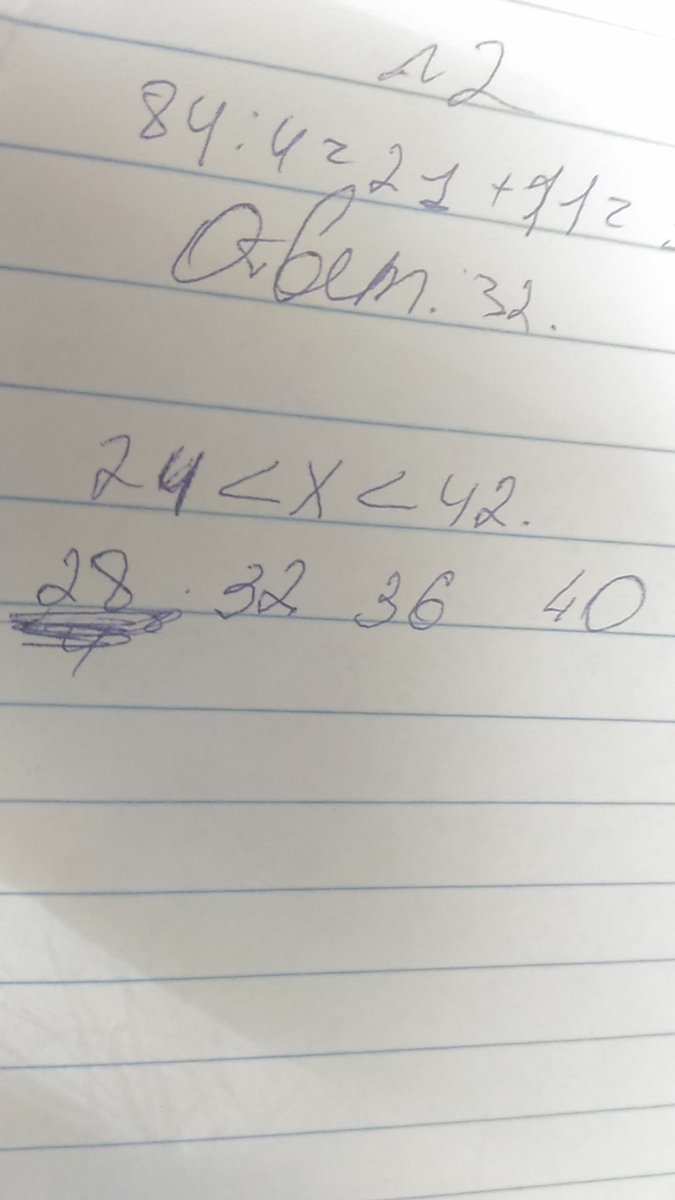 №2
84:4=21+11=
Ответ. 32.
24<x<42.
28 32 36 40